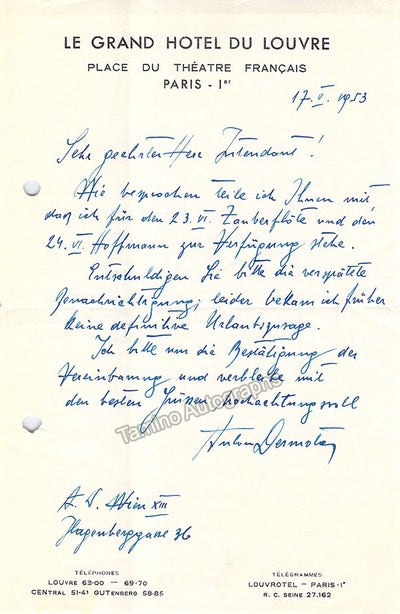 LE GRAND HOTEL DU LOUVRE
PLACE DU THÉATRE FRANÇAIS
PARIS - 1er
17. V. 1953
Sehr geehrter Herr Intendant!
Wie besprochen teile ich Ihnen mit
daß ich für den 23. VI. Zauberflöte und den
24. VI. Hoffmann zur Verfügung stehe.
Entschuldigen Sie bitte die verspätete
Benachrichtigung, leider bekam ich früher
keine definitive Urlaubszusage.
Ich bitte um die Bestätigung der
Vereinbarung und verbleibe mit
den besten Grüssen hochachtungsvoll
Tamino Autographs
Anton Dermota
A. D. Wien XIII
Hagenberggasse 36
TÉLÉPHONES
LOUVRE 63-00 — 69-70
CENTRAL 51-41 GUTENBERG 58-85
TÉLÉGRAMMES
LOUVROTEL — PARIS-1er
R. C. SEINE 27.162